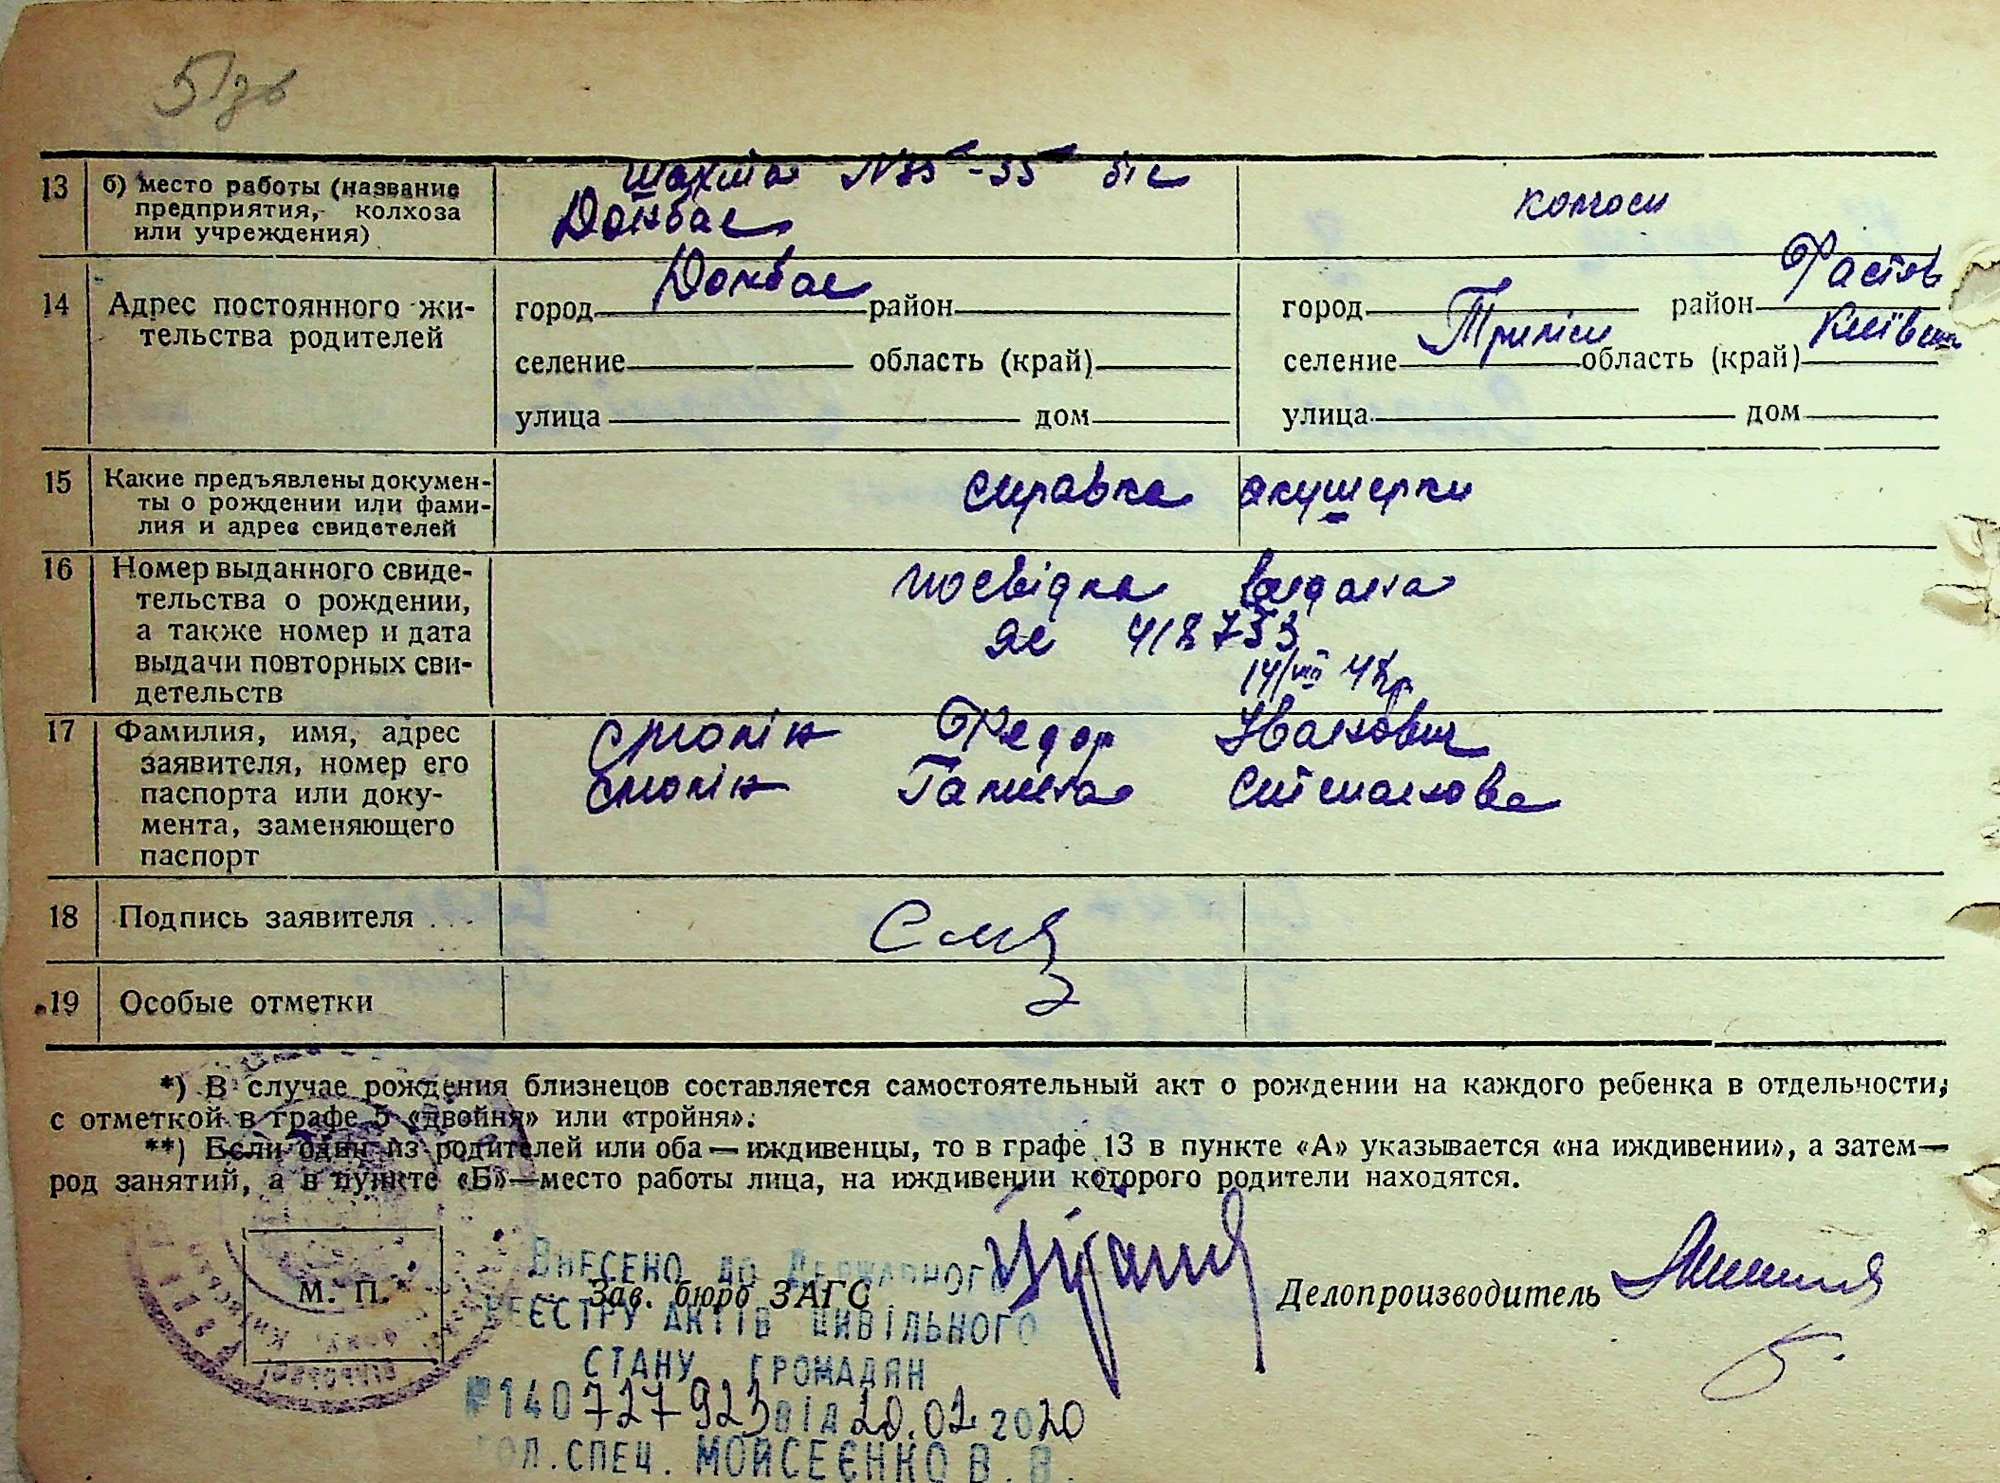 13 б) место работы (название предприятия, колхоза или учреждения)
Шахта №35-35 біс
Донбас
колгосп
14 Адрес постоянного жительства родителей
город Донбас район
селение область (край)
улица дом
город район Фастів
селение Триліси область (край) Київськ
улица дом
15 Какие предъявлены докумен-
ты о рождении или фами-
лия и адрес свидетелей
справка акушерки
16 Номер выданного свиде-
тельства о рождении,
а также номер и дата
выдачи повторных сви-
детельств
посвідка видана
ЯЄ 418753
14/VIII 48р
17 Фамилия, имя, адрес
заявителя, номер его
паспорта или доку-
мента, заменяющего
паспорт
Федор Іванович
Галина Степановна
18 Подпись заявителя
19 Особые отметки
*) В случае рождения близнецов составляется самостоятельный акт о рождении на каждого ребенка в отдельности,
с отметкой в графе 5 «двойня» или «тройня».
**) Если один из родителей или оба — иждивенцы, то в графе 13 в пункте «А» указывается «на иждивении», а затем —
род занятий, а в пункте «Б» — место работы лица, на иждивении которого родители находятся.
М. П.
Зав. бюро ЗАГС
Делопроизводитель
Внесено до Державного
реєстру актів цивільного
стану громадян
№140727923 від 20.02 2020
гол. спец. Мойсеєнко В. В.